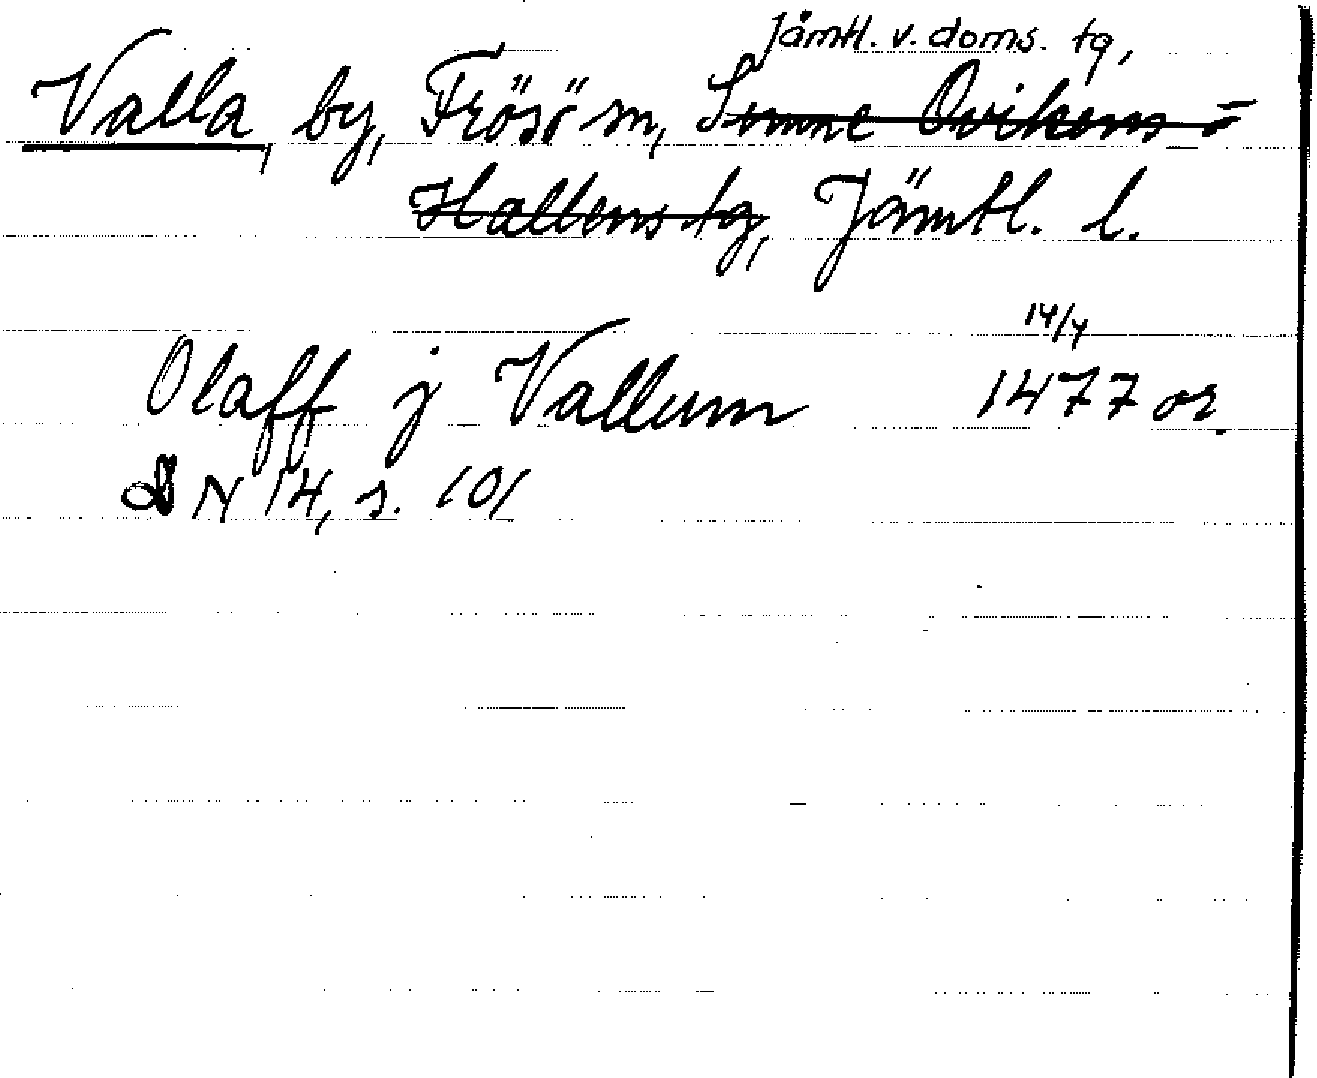 Jämtl. v. doms. tg,
Valla, by, Frösö sn, Sunne Ovikens o
Hallens tg, Jämtl. l.
14/4
Olaff j Vallum 1477 or.
DN 14, s. 101